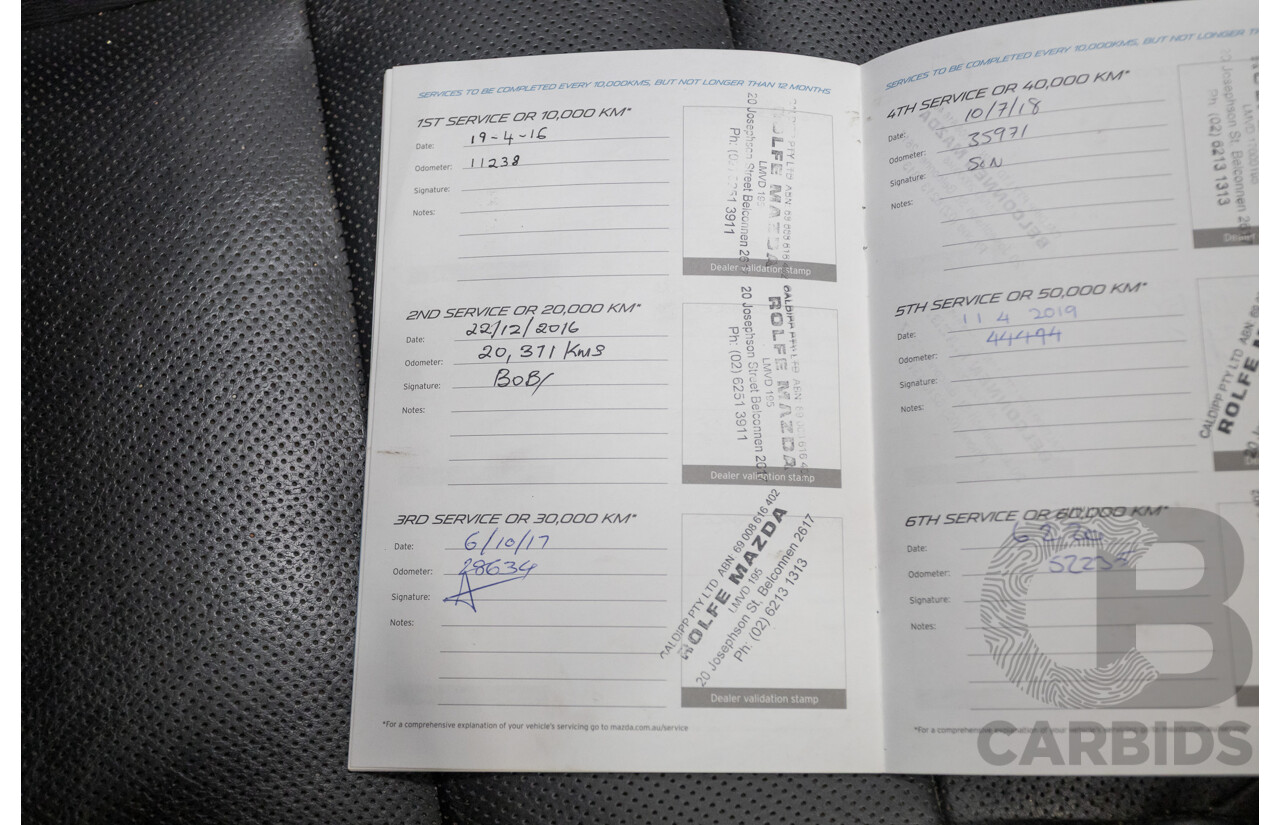 SERVICES TO BE COMPLETED EVERY 10,000KMS, BUT NOT LONGER THAN 12 MONTHS
1ST SERVICE OR 10,000 KM*
Date: 19-4-16
Odometer: 11238
Signature:
Notes:
CALDIPP PTY LTD ABN 69 008 616
ROLFE MAZDA
LMVD 195
20 Josephson Street Belconnen 2617
Ph: (02) 6251 3911
Dealer validation stamp
2ND SERVICE OR 20,000 KM*
Date: 22/12/2016
Odometer: 20,371 Kms
Signature: BOB/
Notes:
CALDIPP PTY LTD ABN 69 008 616 402
ROLFE MAZDA
LMVD 195
20 Josephson Street Belconnen 2617
Ph: (02) 6251 3911
Dealer validation stamp
3RD SERVICE OR 30,000 KM*
Date: 6/10/17
Odometer: 28634
Signature:
Notes:
CALDIPP PTY LTD ABN 69 008 616 402
ROLFE MAZDA
LMVD 195
20 Josephson St. Belconnen 2617
Ph: (02) 6213 1313
Dealer validation stamp
*For a comprehensive explanation of your vehicle's servicing go to mazda.com.au/service
SERVICES TO BE COMPLETED EVERY 10,000KMS, BUT NOT LONGER TH
4TH SERVICE OR 40,000 KM*
Date: 10/7/18
Odometer: 35971
Signature: SON
Notes:
20 Josephson St. Belconnen 2617
Ph: (02) 6213 1313
5TH SERVICE OR 50,000 KM*
Date: 11 4 2019
Odometer: 44494
Signature:
Notes:
CALDIPP PTY LTD ABN 69
ROLFE
20 Jo
6TH SERVICE OR 60,000 KM*
Date:
Odometer:
Signature:
Notes:
*For a comprehensive explanation of your vehicle's servicing go to
CARBIDS